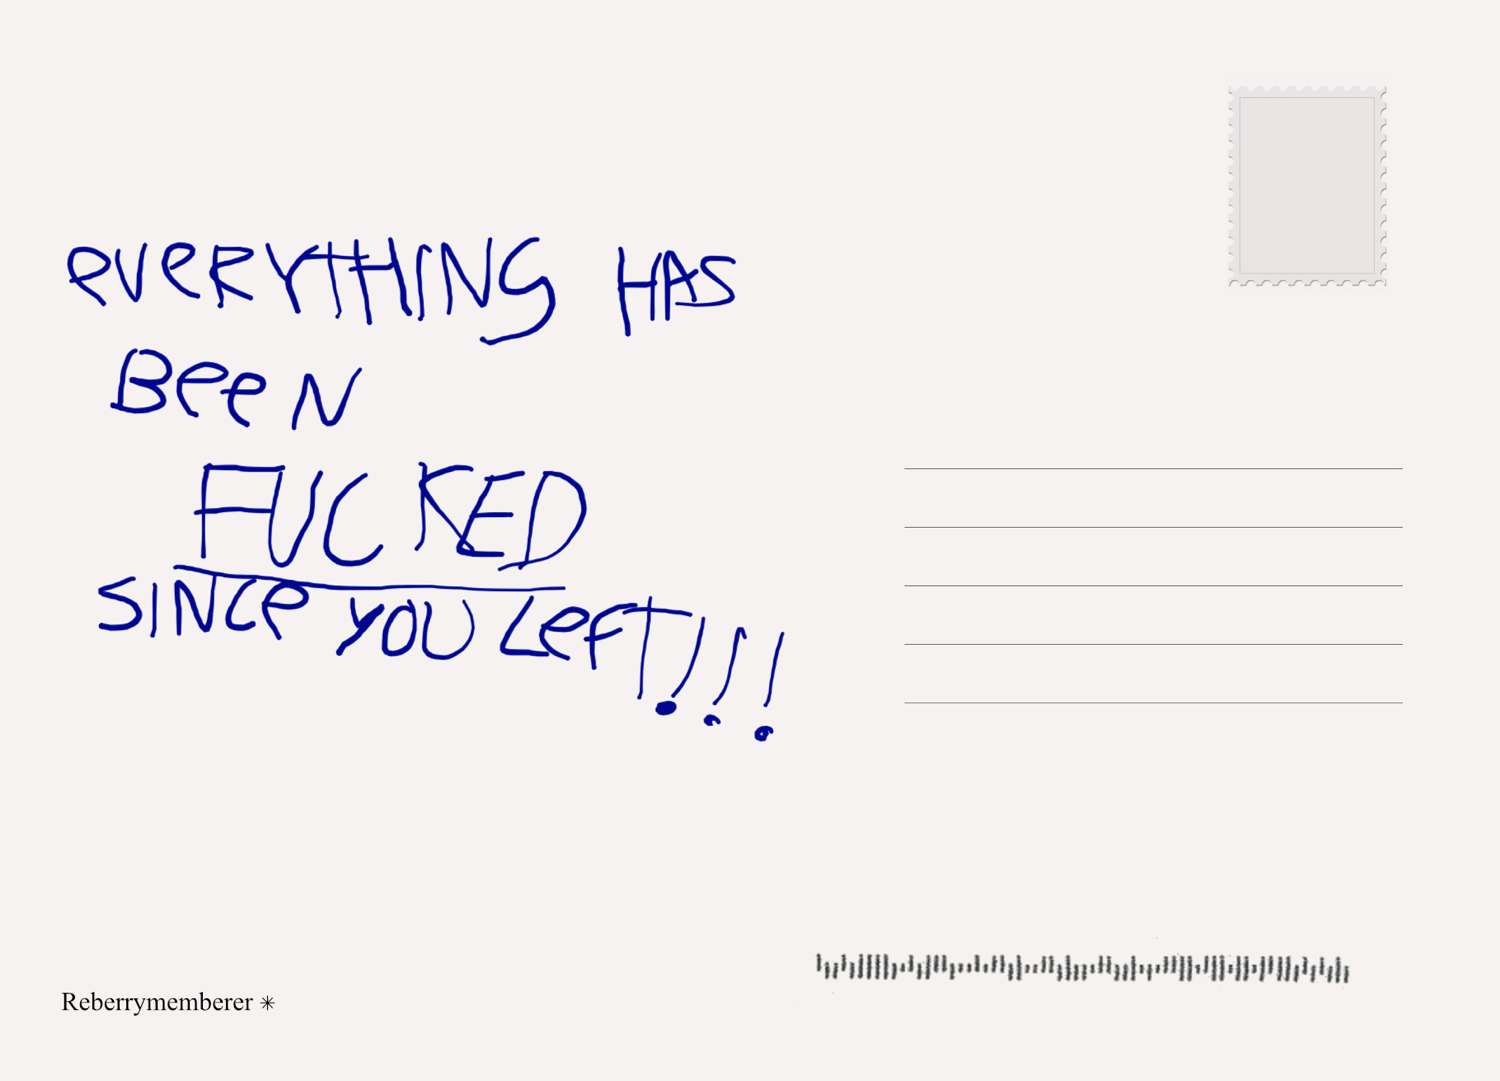 eVeRYTHING HAS
BeeN
FUCKED
SINCe YOU LefT!!!
Reberrymemberer ✳